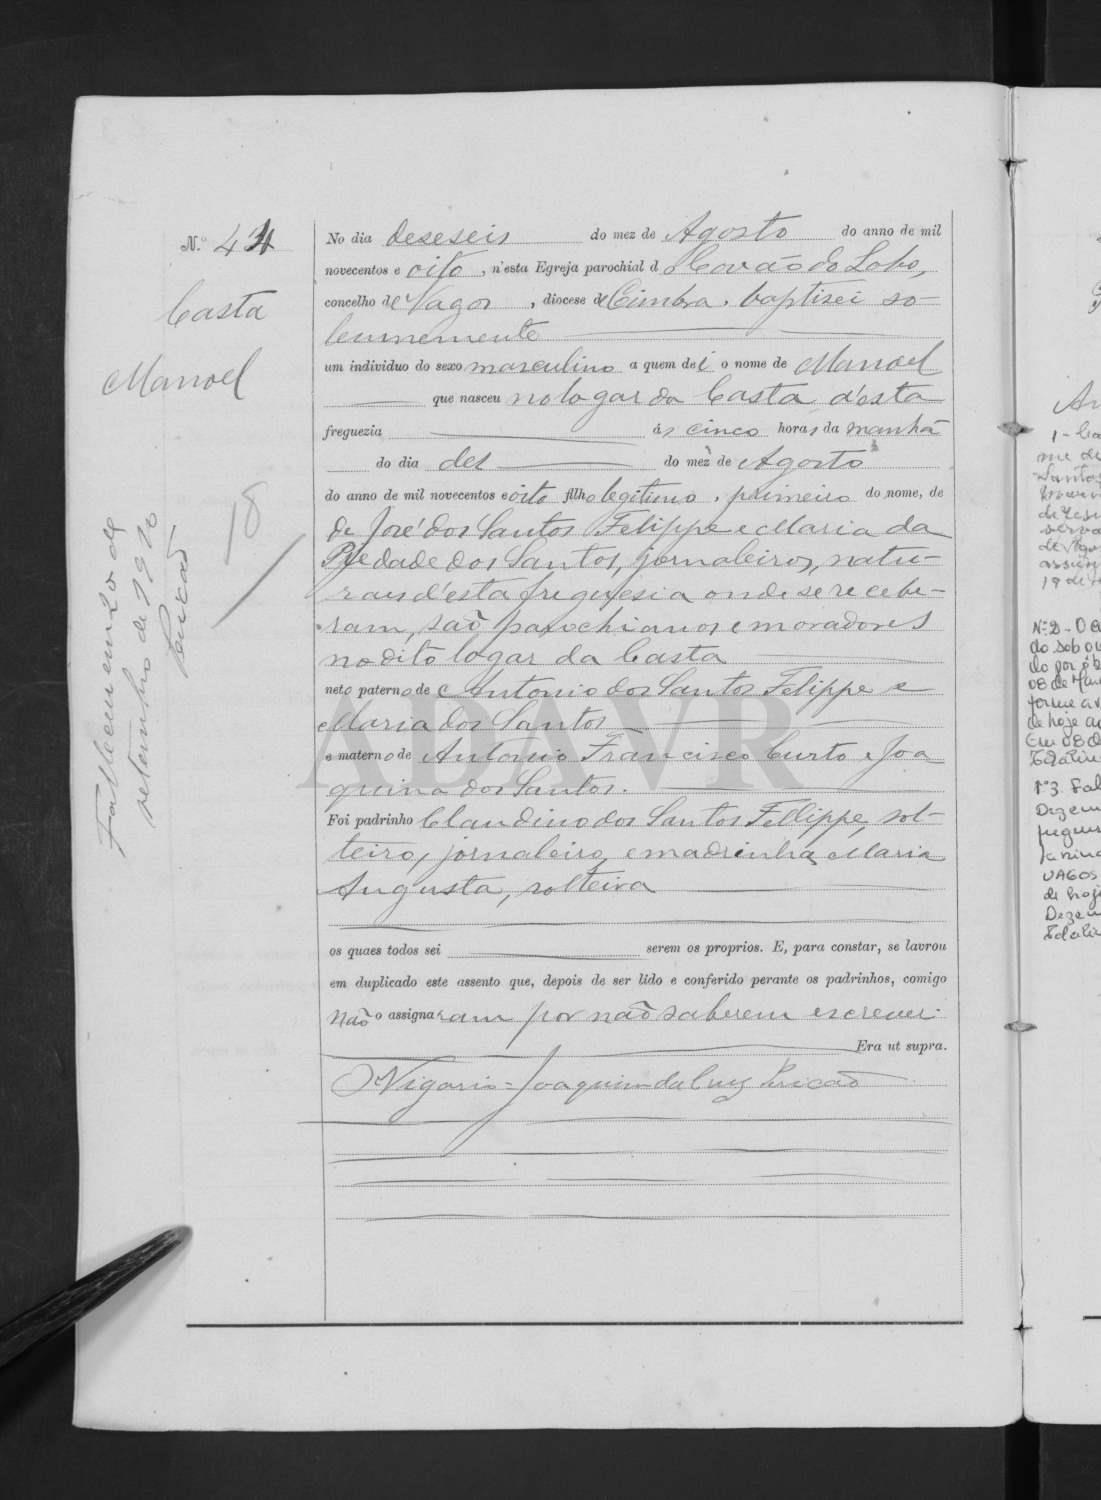 N.º 44
Casta
Manoel
Falleceu em 20 de
setembro de 1920
Pericão
18
No dia deseseis do mez de Agosto do anno de mil
novecentos e oito, n'esta Egreja parochial d Covão do Lobo,
concelho de Vagos, diocese de Coimbra. baptisei so-
lemnemente
um individuo do sexo masculino a quem dei o nome de Manoel
que nasceu no logar da Casta d'esta
freguezia ás cinco horas da manhã
do dia dez do mez de Agosto
do anno de mil novecentos e oito filho legitimo, primeiro do nome, de
de José dos Santos Felippe e Maria da
Piedade dos Santos, jornaleiros, natu-
raes d'esta freguesia onde se recebe-
ram, são parochianos e moradores
no dito logar da Casta
neto paterno de Antonio dos Santos Felippe e
Maria dos Santos
e materno de Antonio Francisco Curto e Joa
quina dos Santos.
Foi padrinho Claudino dos Santos Fellippe, sol-
teiro, jornaleiro, e madrinha Maria
Augusta, solteira
os quaes todos sei serem os proprios. E, para constar, se lavrou
em duplicado este assento que, depois de ser lido e conferido perante os padrinhos, comigo
não o assignaram por não saberem escrever.
Era ut supra.
O Vigario = Joaquim da Cruz Pericão
ADAVR